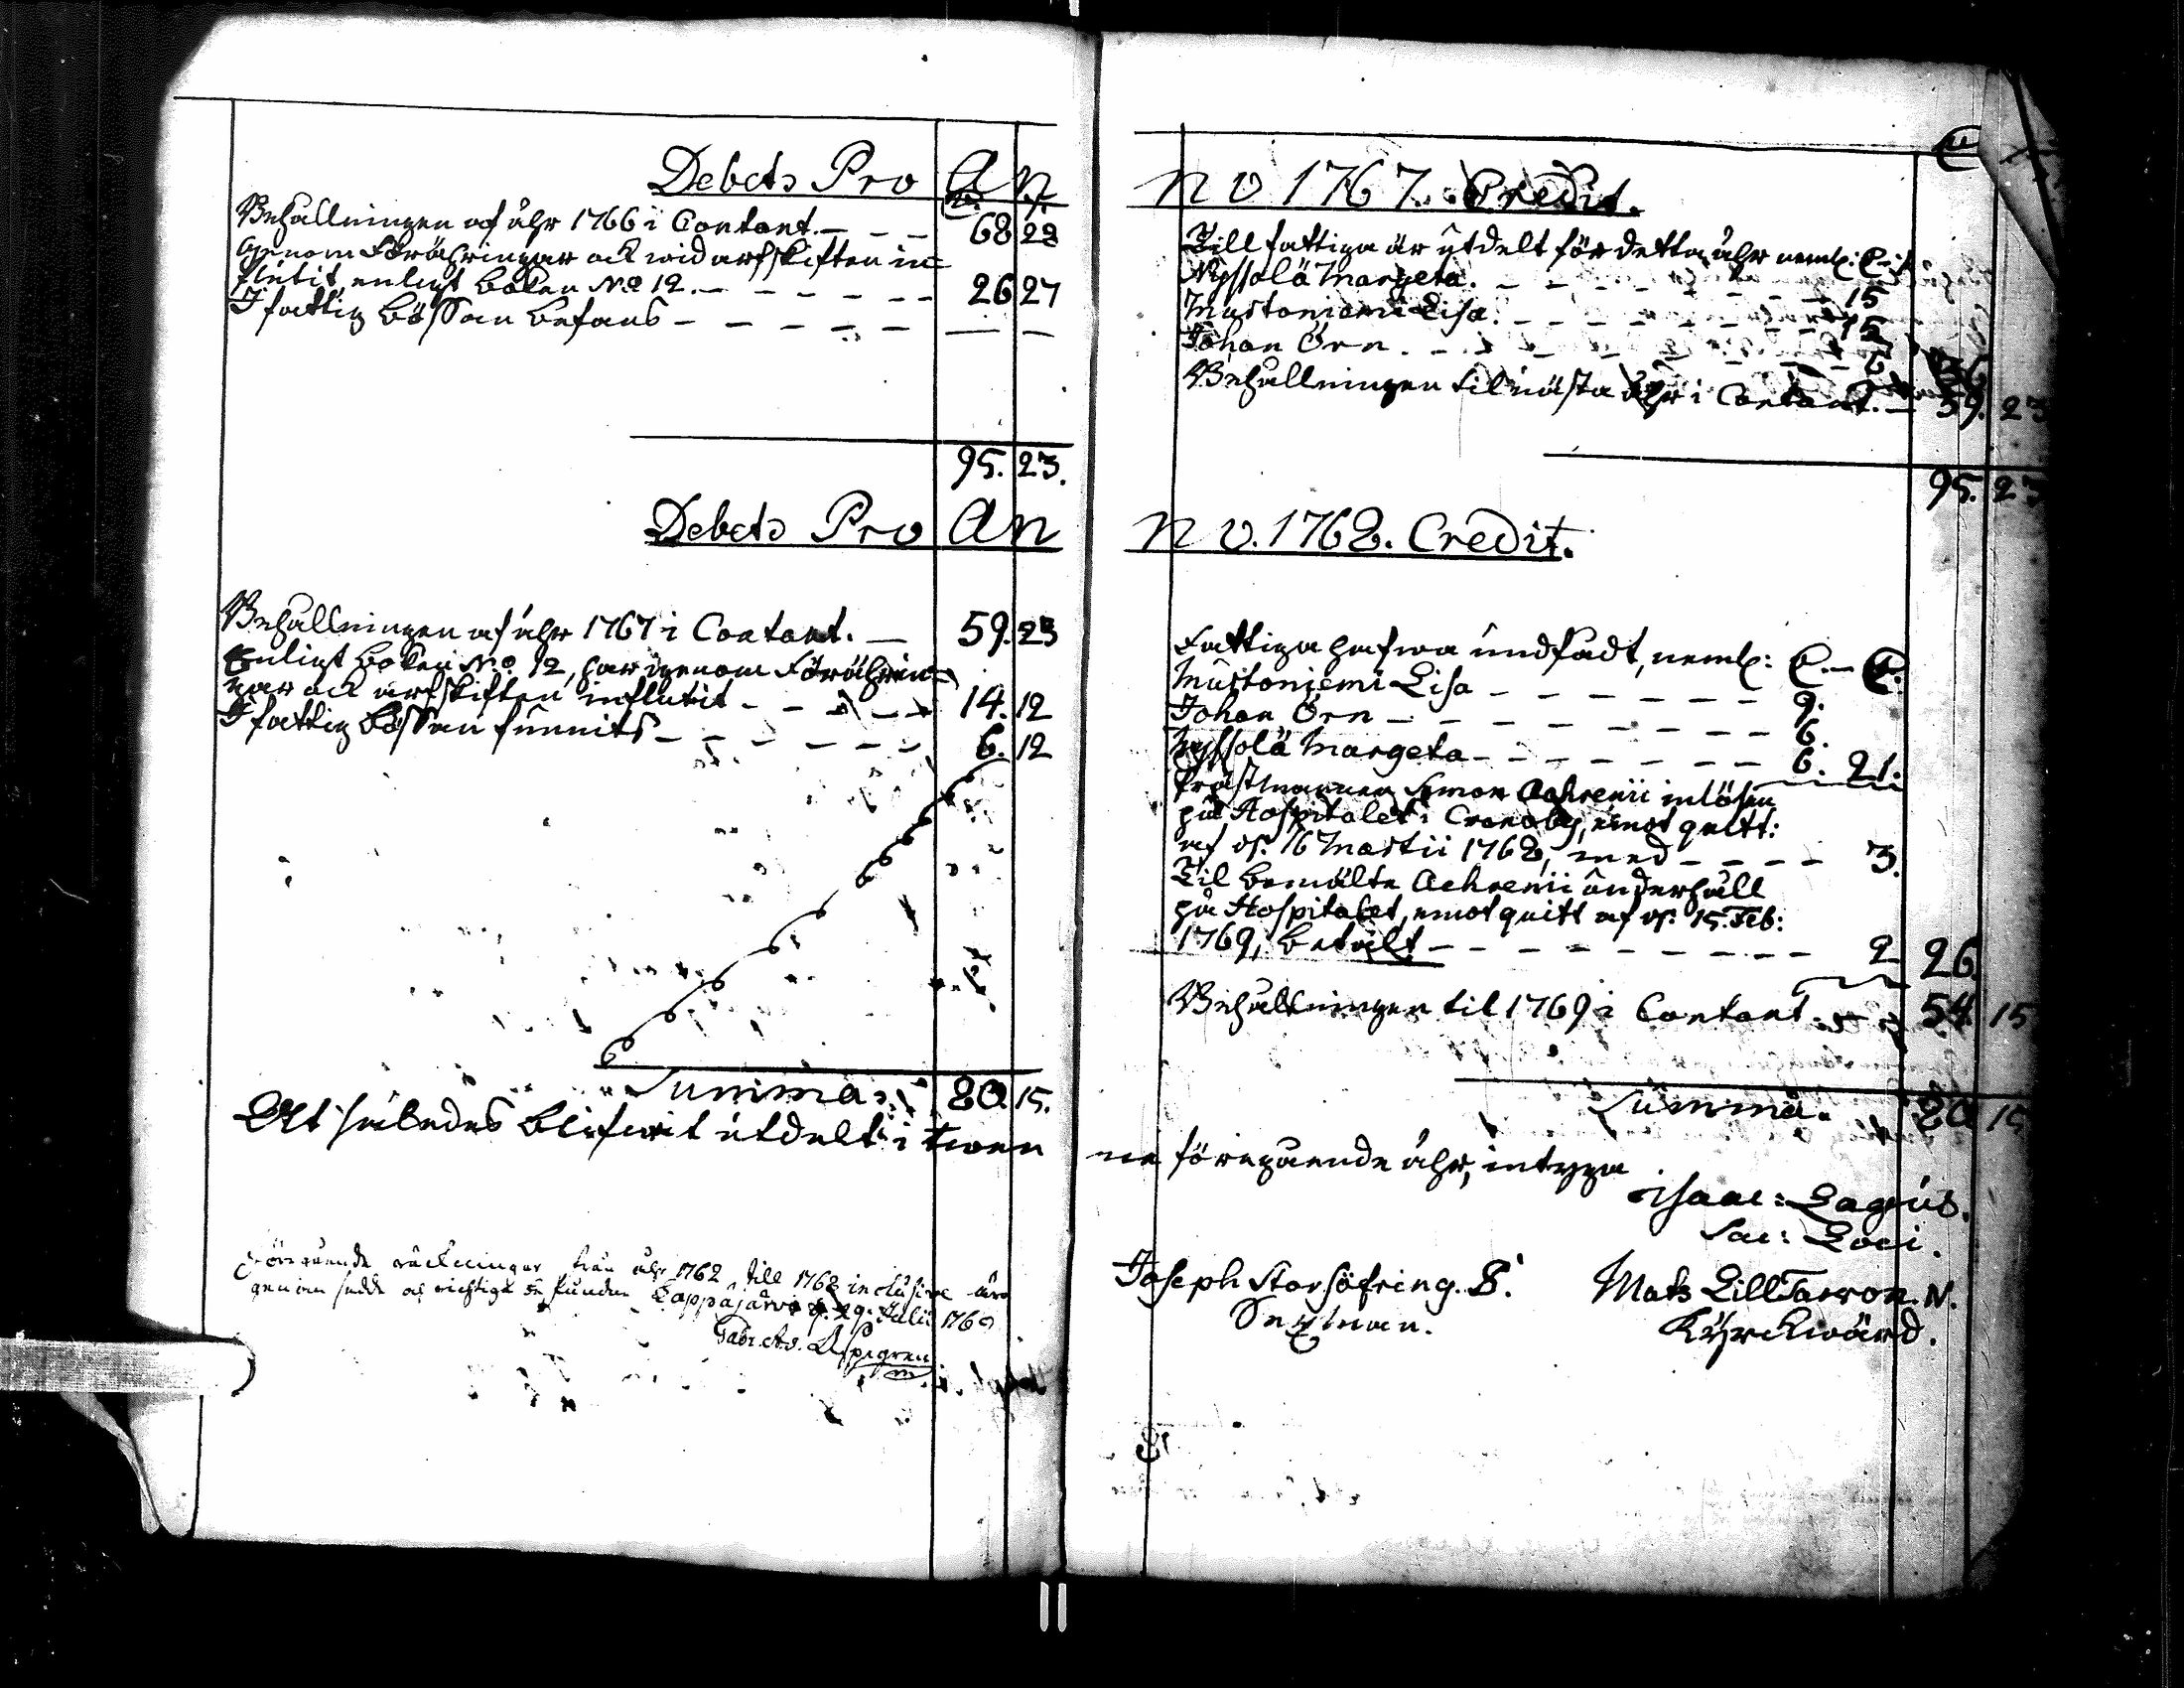 Debets Pro An
Behållningen af åhr 1766 i Contant. — — — 68 28
Genom Förähringar ock wid arfskiften in=
flutit, enligt boken No 12. — — — — — — 26 27
I fattig bössan befans — — — — — — —
95. 23.
Debets Pro An
Behållningen af åhr 1767 i Contant. — 59. 23
Enligt boken No. 12, har igenom Förährin=
gar ock arfskiften influtit — — — — 14. 12
I fattig bössan funnits — — — — — — 6. 12
Summa. 80. 15.
Att således blifwit utdelt i twen
Föregående räckningar från åhr 1762 till 1768 inclusive äro
genomsedde och richtige befundne Lappajärvi d. 29. Julii 1769
Gabr. Aspegren
no 1767. Credit.
Till fattiga är utdelt för detta åhr neml:
Nyssölä Margeta. — — — — — — — 15
Mustoniemi Lisa. — — — — — — 15
Johan Örn. — — — — — — — 6 36
Behållningen til nästa åhr i Contant. — 59. 23
95. 23
no. 1768. Credit.
Fattiga hafwa undfådt, neml:
Mustoniemi Lisa — — — — — — 9.
Johan Örn — — — — — — — 6.
Nyssölä Margeta — — — — — — 6. 21.
Prästmannen Simon Achrenii inlösen
på Hospitalet i Cronoby, emot quitt:
af d. 16 Martii 1768, med — — — — 3.
Til bemälte Achrenii underhåll
på Hospitalet, emot quitt af d. 15. Feb:
1769, betalt — — — — — — — — 2 26.
Behållningen til 1769 i Contant. — 54. 15
Summa. 80 15
ne föregående åhr, intyga
Isaac: Lagus.
Sac: Loci.
Joseph Storsöfring. S. Mats LillTarvon. N.
Sexman. Kyrckwärd.